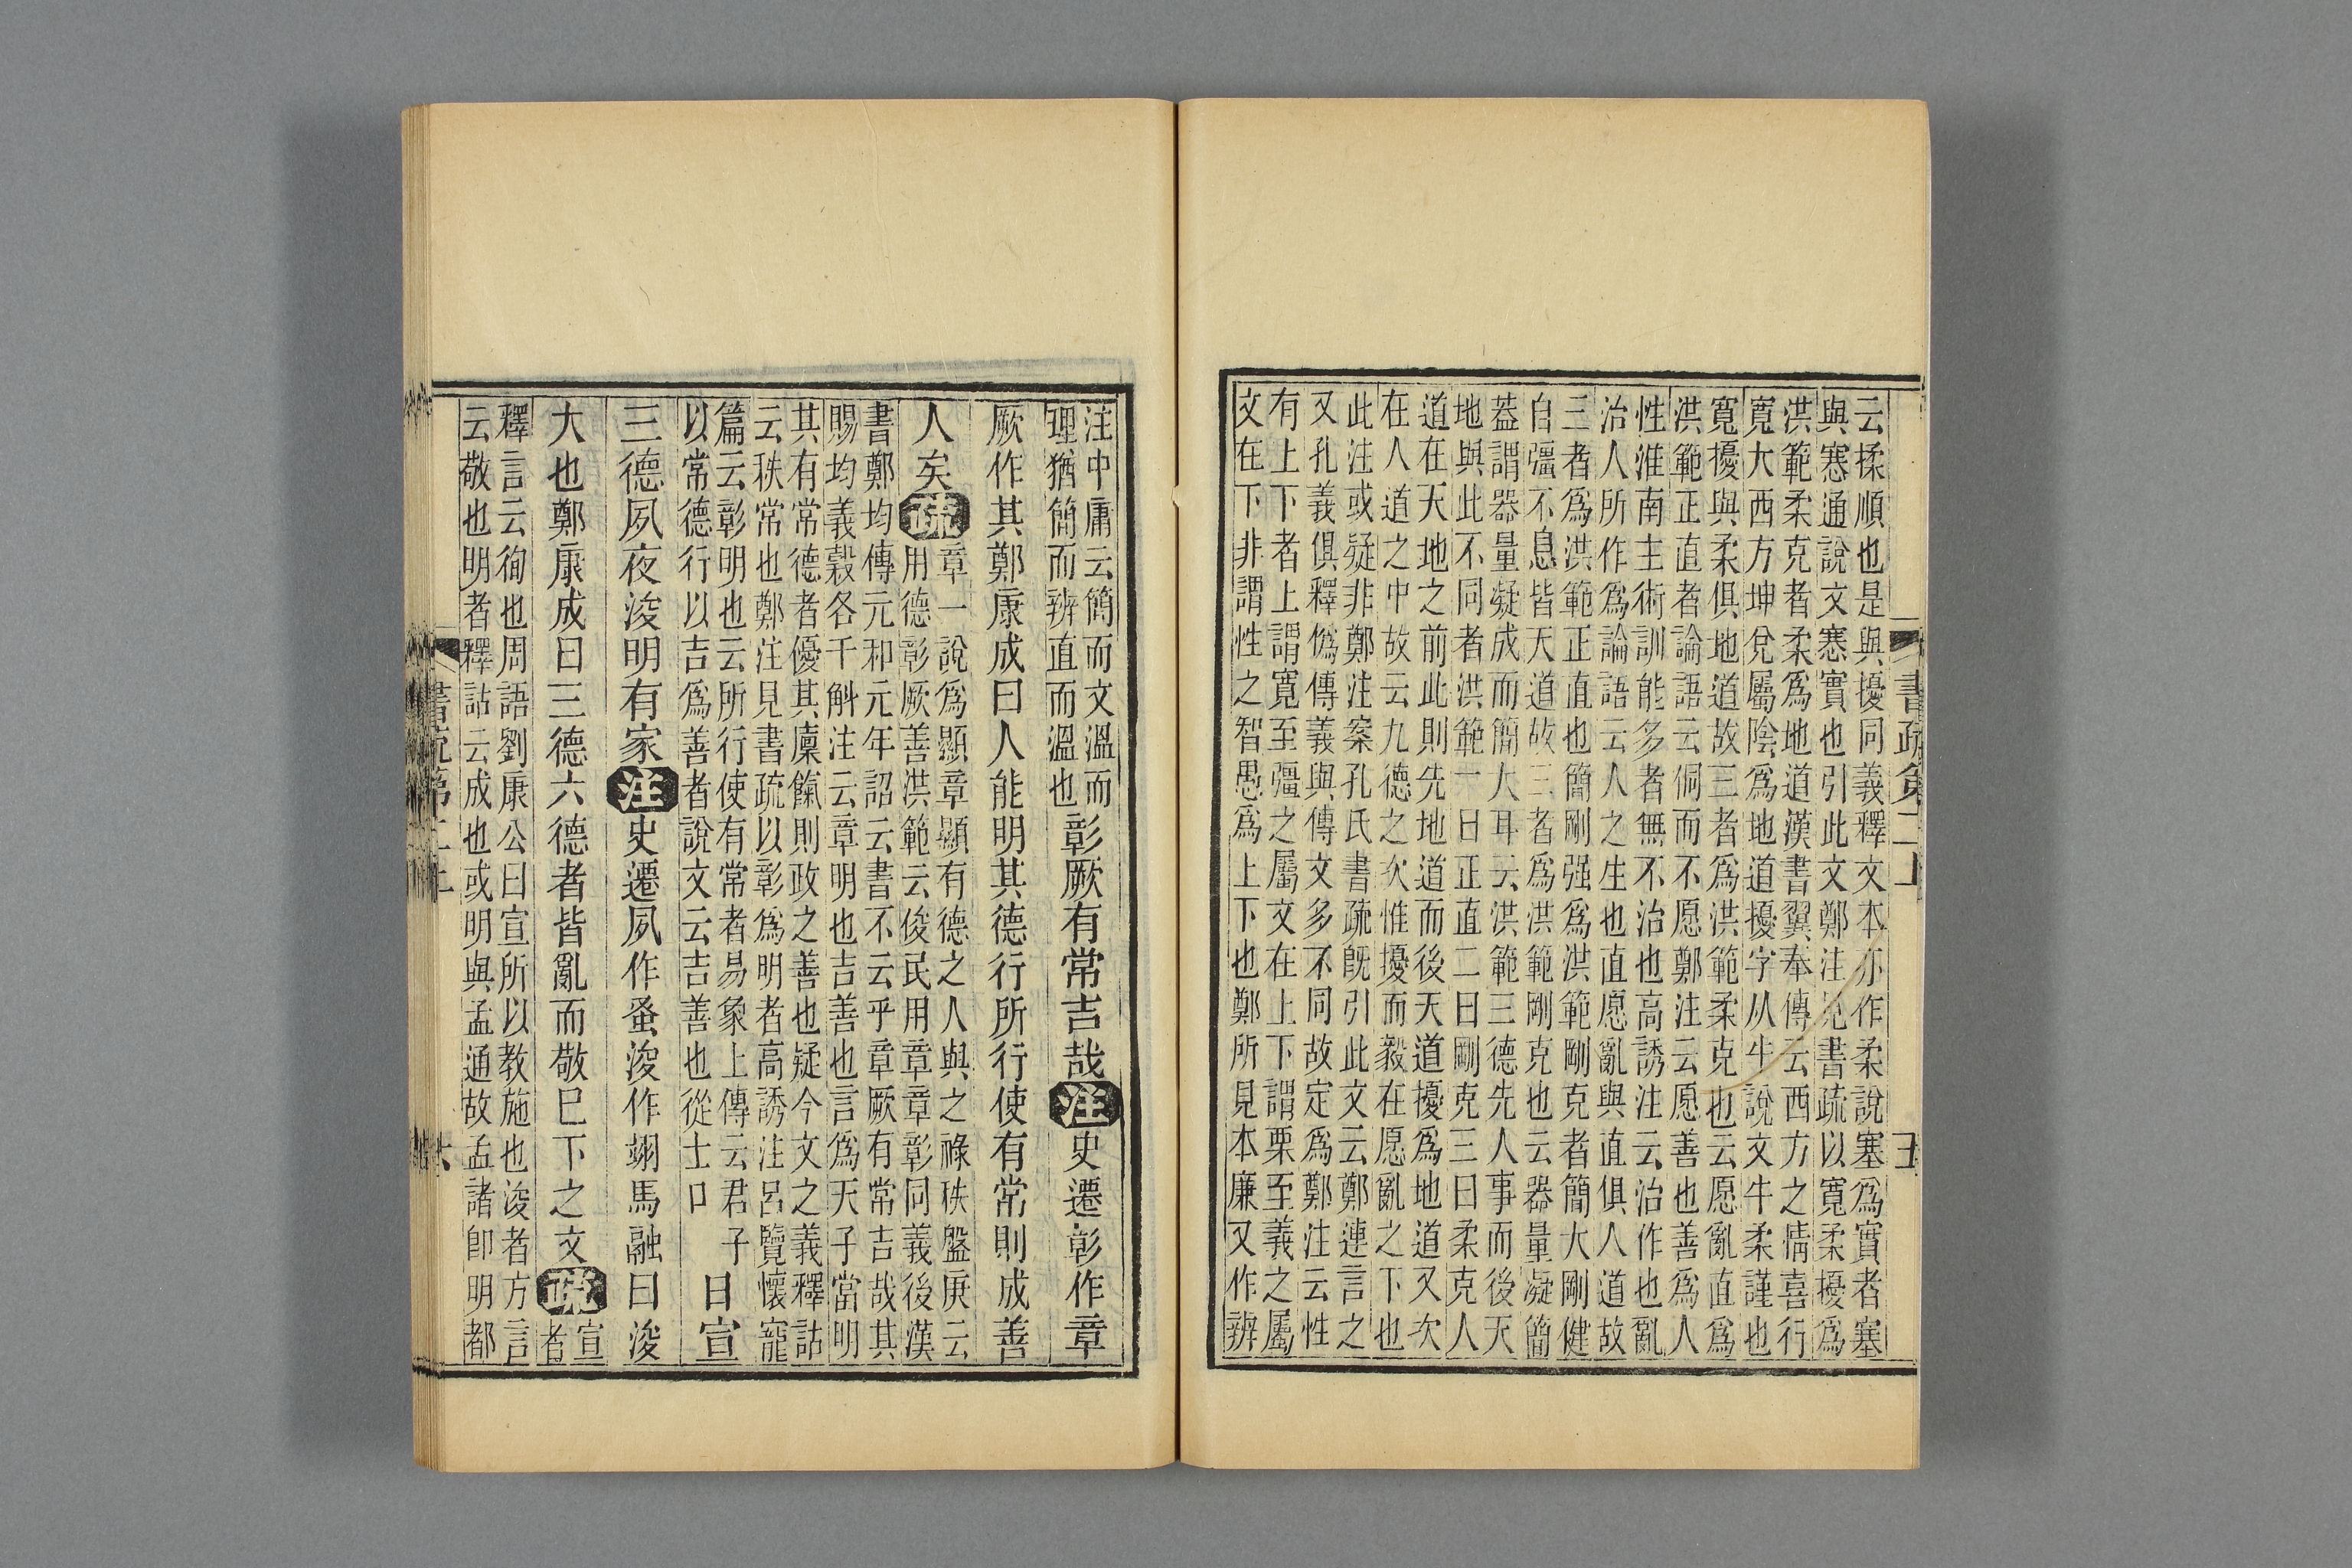 書疏弟二上
五
云揉順也是與擾同義釋文本亦作柔說塞爲實者塞
與寋通說文寋實也引此文鄭注見書疏以寬柔擾爲
洪範柔克者柔爲地道漢書翼奉傳云西方之情喜行
寬大西方坤兌屬陰爲地道擾字从牛說文牛柔謹也
寬擾與柔俱地道故三者爲洪範柔克也云愿亂直爲
洪範正直者論語云侗而不愿鄭注云愿善也善爲人
性淮南主術訓能多者無不治也高誘注云治作也亂
治人所作爲論語云人之生也直愿亂與直俱人道故
三者爲洪範正直也簡剛强爲洪範剛克者簡大剛健
自彊不息皆天道故三者爲洪範剛克也云器量凝簡
蓋謂器量凝成而簡大耳云洪範三德先人事而後天
地與此不同者洪範一曰正直二曰剛克三曰柔克人
道在天地之前此則先地道而後天道擾爲地道又次
在人道之中故云九德之次惟擾而毅在愿亂之下也
此注或疑非鄭注案孔氏書疏旣引此文云鄭連言之
又孔義俱釋僞傳義與傳文多不同故定爲鄭注云性
有上下者上謂寬至彊之屬文在上下謂栗至義之屬
文在下非謂性之智愚爲上下也鄭所見本廉又作辨
注中庸云簡而文溫而
理猶簡而辨直而溫也
彰厥有常吉哉注史遷彰作章
厥作其鄭康成曰人能明其德行所行使有常則成善
人矣疏
章一說爲顯章顯有德之人與之祿秩盤庚云
用德彰厥善洪範云俊民用章章彰同義後漢
書鄭均傳元和元年詔云書不云乎章厥有常吉哉其
賜均義穀各千斛注云章明也吉善也言爲天子當明
其有常德者優其廩餼則政之善也疑今文之義釋詁
云秩常也鄭注見書疏以彰爲明者高誘注呂覽懷寵
篇云彰明也云所行使有常者易象上傳云君子
以常德行以吉爲善者說文云吉善也從士口
日宣
三德夙夜浚明有家注史遷夙作蚤浚作翊馬融曰浚
大也鄭康成曰三德六德者皆亂而敬巳下之文疏
宣
者
釋言云徇也周語劉康公曰宣所以教施也浚者方言
云敬也明者釋詁云成也或明與孟通故孟諸卽明都
書疏弟二上
六